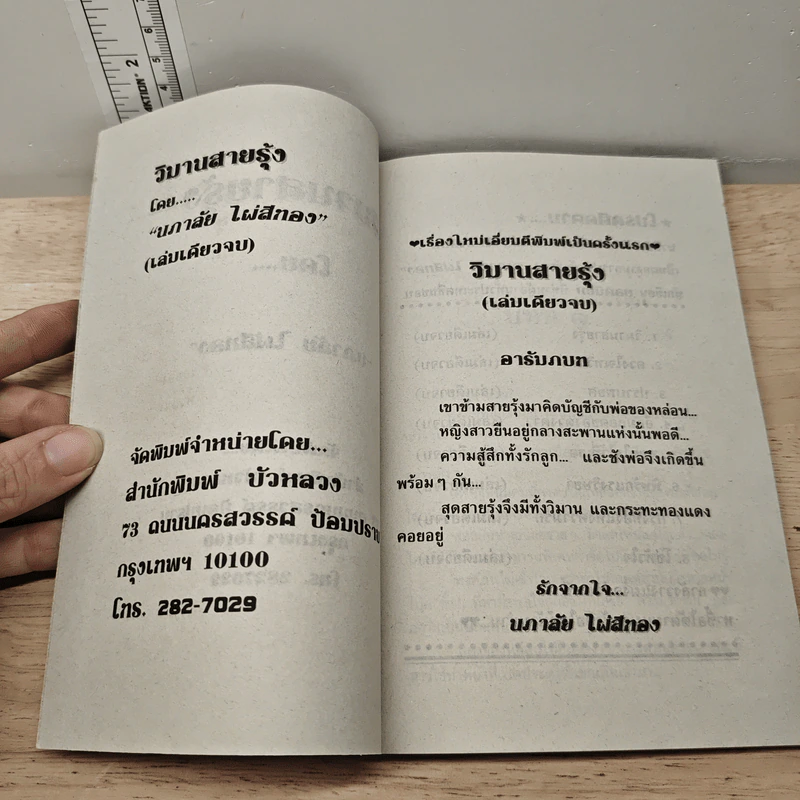 วิมานสายรุ้ง
โดย.....
“นภาลัย ไผ่สีทอง”
(เล่มเดียวจบ)
จัดพิมพ์จำหน่ายโดย...
สำนักพิมพ์ บัวหลวง
73 ถนนนครสวรรค์ ป้อมปราบ
กรุงเทพฯ 10100
โทร. 282-7029
♥เรื่องใหม่เอี่ยมตีพิมพ์เป็นครั้งแรก♥
วิมานสายรุ้ง
(เล่มเดียวจบ)
อารัมภบท
เขาข้ามสายรุ้งมาคิดบัญชีกับพ่อของหล่อน...
หญิงสาวยืนอยู่กลางสะพานแห่งนั้นพอดี...
ความสู้สึกทั้งรักลูก... และชังพ่อจึงเกิดขึ้น
พร้อมๆ กัน...
สุดสายรุ้งจึงมีทั้งวิมาน และกระทะทองแดง
คอยอยู่
รักจากใจ...
นภาลัย ไผ่สีทอง
2